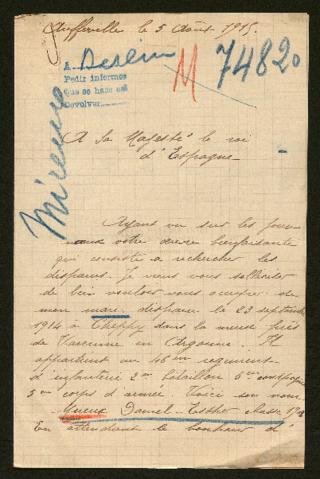 Aufferville le 5 Août 1915.
A Berlin
M 74820
Pedir informes
que se hace est
Devolver
Mireux
A Sa Majesté le roi
d'Espagne
Ayant vu sur les jour
naux votre œuvre bienfaisante
qui consiste a rechercher les
disparus. Je viens vous solliciter
de bien vouloir vous occuper de
mon mari, disparu le 23 septembre
1914 à Cheppy dans la meuse près
de Varenne en Argonne. Il
appartient au 46em regiment
d'infanterie 2em bataillon 6em compagnie
5em corps d'armée. Voici son nom
Mireux Daniel Esther classe
En attendant le bonheur d'